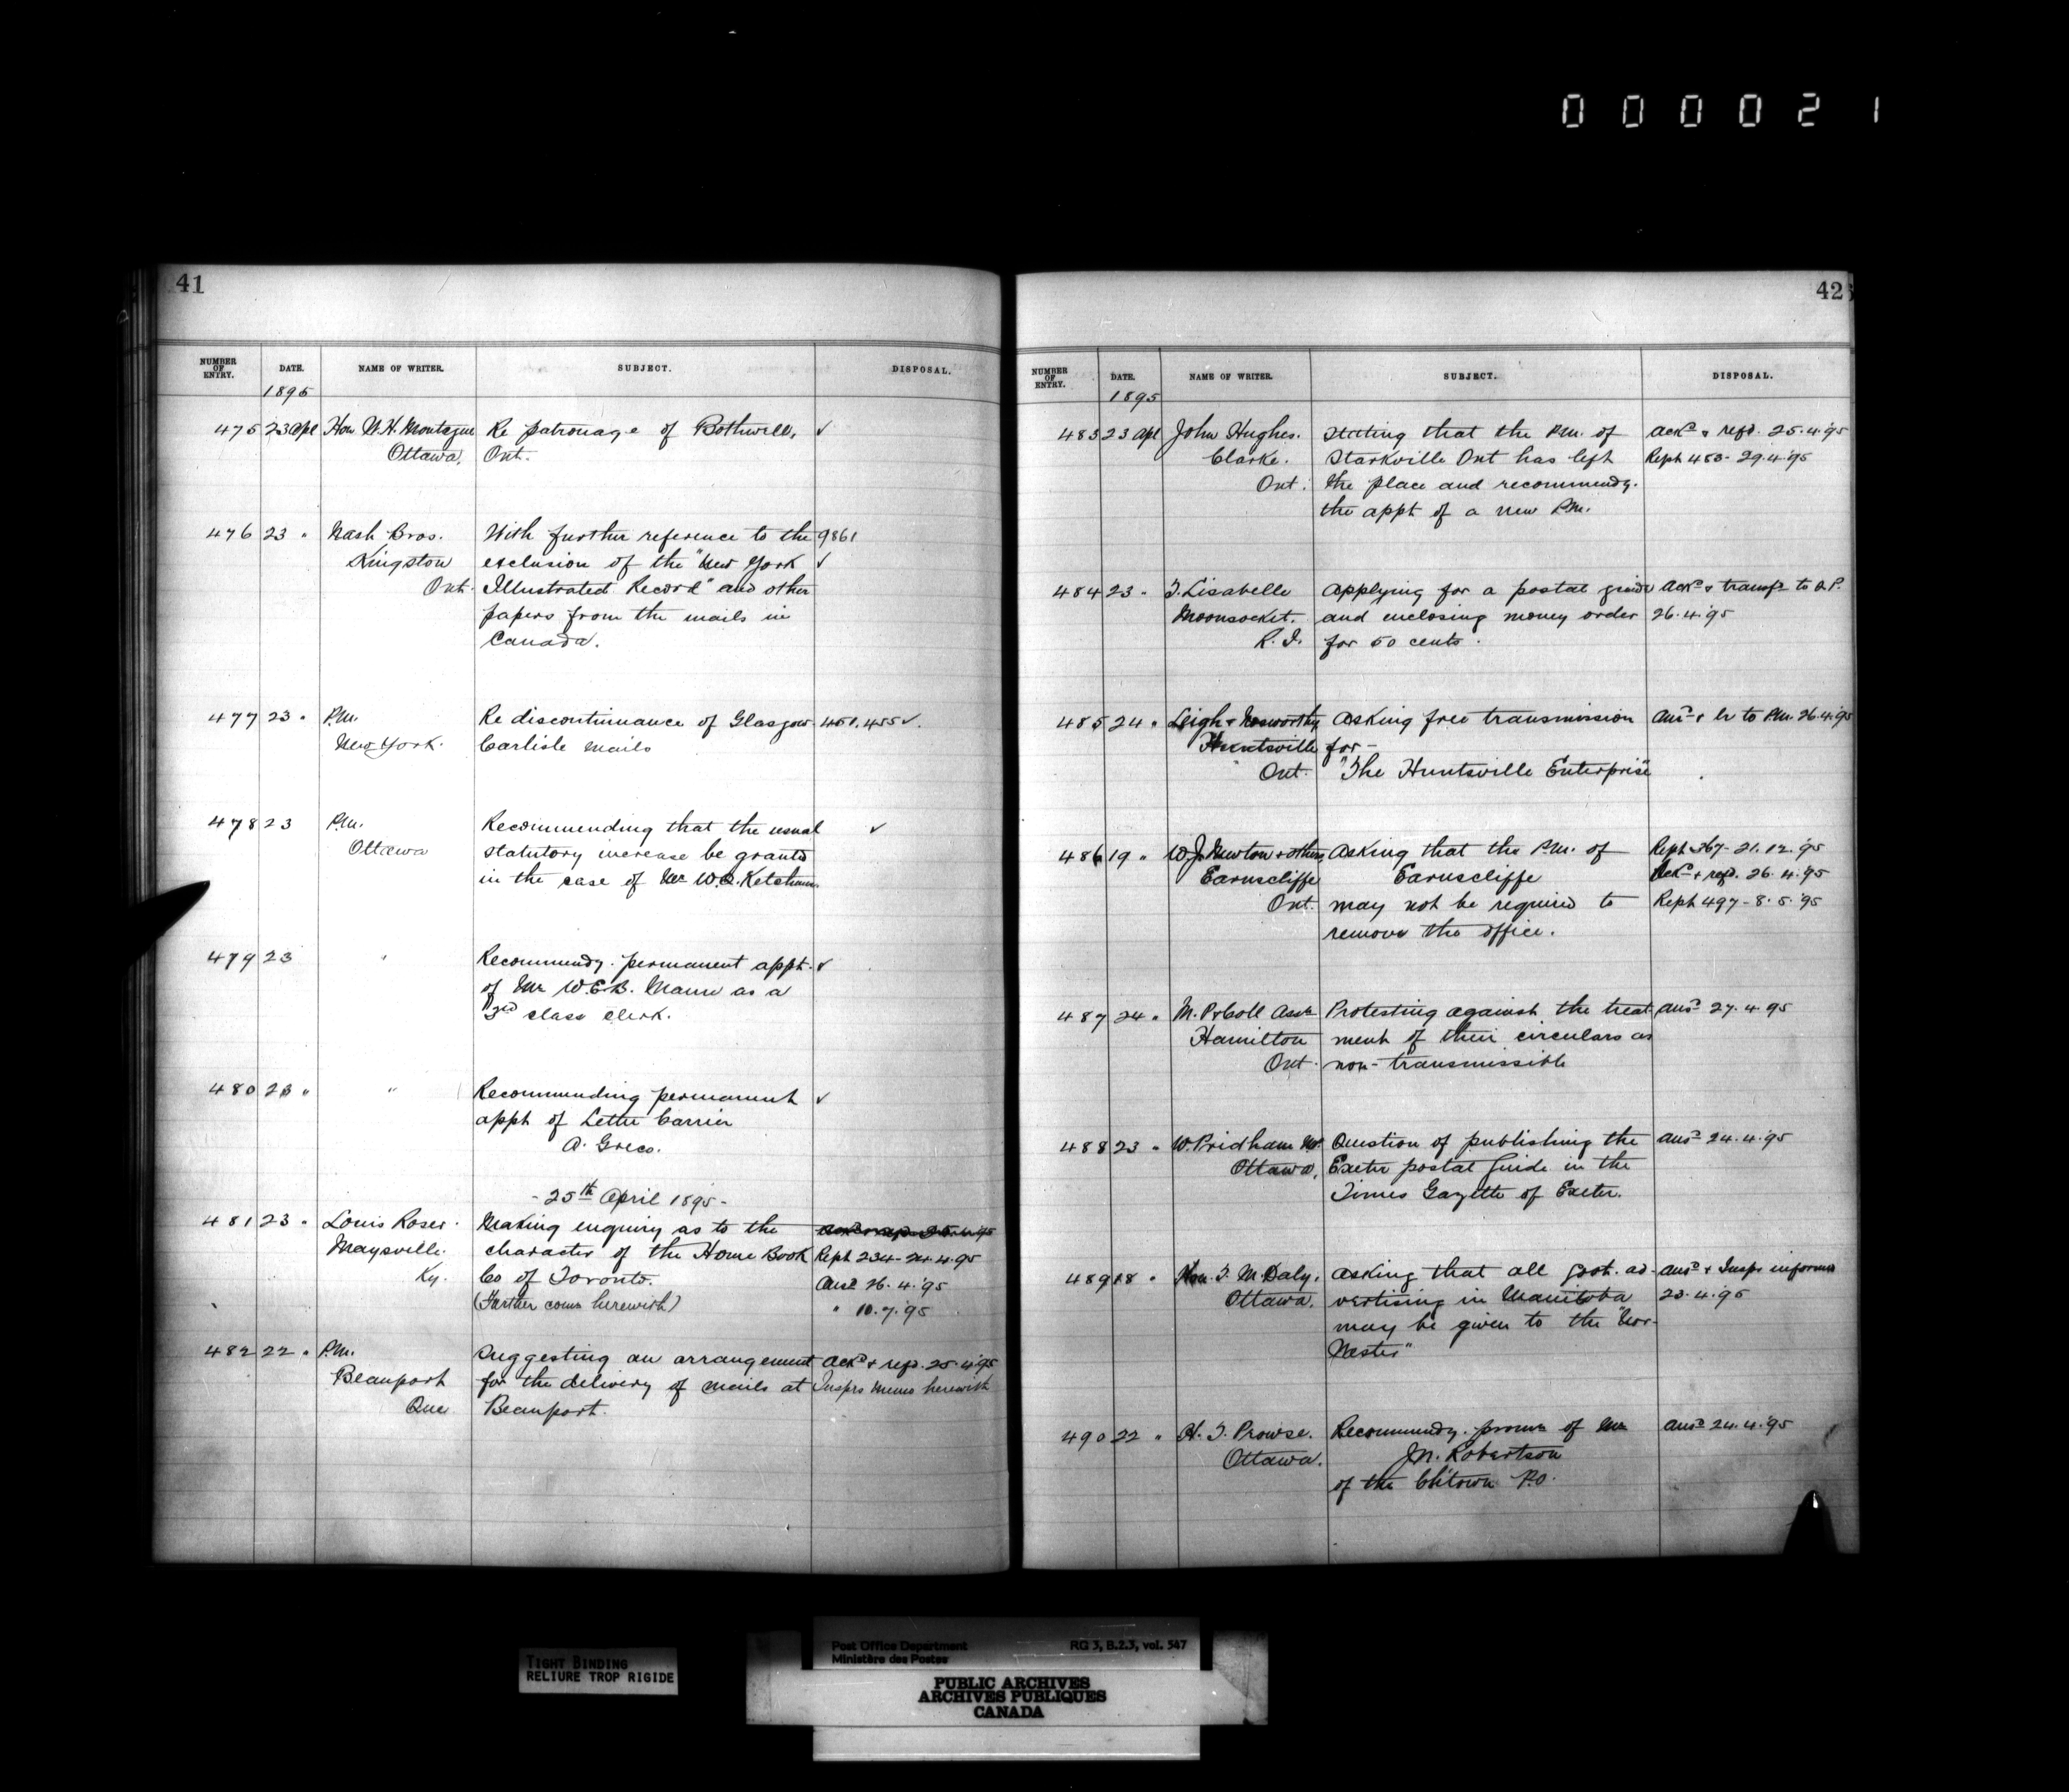 000021
41
NUMBER OF ENTRY. DATE. NAME OF WRITER. SUBJECT. DISPOSAL.
1895
475 23 Apl Hon W.H. Montague Re patronage of Bothwell, ✓
Ottawa. Ont.
476 23 " Nash Bros. With further reference to the 9861
Kingston exclusion of the "New York ✓
Ont. Illustrated Record" and other
papers from the mails in
Canada.
477 23 " P.M. Re discontinuance of Glasgow 451, 455 ✓.
New York. Carlisle mails
478 23 P.M. Recommending that the usual ✓
Ottawa statutory increase be granted
in the case of Mr W.Q. Ketchum.
479 23 " Recommendg. permanent appt. ✓
of Mr W.E.B. Mann as a
3rd class clerk.
480 23 " " Recommending permanent ✓
appt of Letter Carrier
A. Greco.
- 25th April 1895 -
481 23 " Louis Roser. Making enquiry as to the
Maysville. character of the Home Book Rept 234 - 24.4.95
Ky. Co of Toronto. Ansd 26.4.'95
(Further comn herewith) " 10.7.'95
482 22 " P.M. Suggesting an arrangement Ackd & refd. 25.4.'95
Beauport for the delivery of mails at Insprs memo herewith
Que Beauport.
42
NUMBER OF ENTRY. DATE. NAME OF WRITER. SUBJECT. DISPOSAL.
1895
483 23 Apl John Hughes. Stating that the P.M. of Ackd & refd. 25.4.'95
Clarke. Starkville Ont has left Rept 483 - 29.4.'95
Ont. the place and recommendg.
the appt of a new P.M.
484 23 " T. Lisabelle Applying for a postal guide Ackd & transfd to
Moonsocket. and enclosing money order 26.4.'95
R.I. for 50 cents.
485 24 " Leigh & Nosworthy Asking free transmission Ansd & lr to P.M. 26.4.'95
Huntsville for -
Ont. "The Huntsville Enterprise"
486 19 " W.J. Newton & others Asking that the P.M. of Rept 367 - 21.12.'95
Earnscliffe Earnscliffe Ackd & refd. 26.4.'95
Ont. may not be required to Rept 497 - 8.5.'95
remove the office.
487 24 " M. P. & Coll Assn Protesting against the treat Ansd 27.4.95
Hamilton ment of their circulars as
Ont. non-transmissible
488 23 " W. Pridham M.P. Question of publishing the Ansd 24.4.'95
Ottawa. Exeter postal Guide in the
Times Gazette of Exeter.
489 18 " Hon. T.M. Daly. Asking that all Govt. ad- Ansd & Inspr informed
Ottawa. vertising in Manitoba 23.4.'95
may be given to the "Nor-
Wester"
490 22 " H.T. Prowse. Recommendg. promn of Mr Ansd 24.4.'95
Ottawa. J.N. Robertson
of the Ch'town P.O.
TIGHT BINDING
RELIURE TROP RIGIDE
Post Office Department RG 3, B.2.3, vol. 547
Ministère des Postes
PUBLIC ARCHIVES
ARCHIVES PUBLIQUES
CANADA